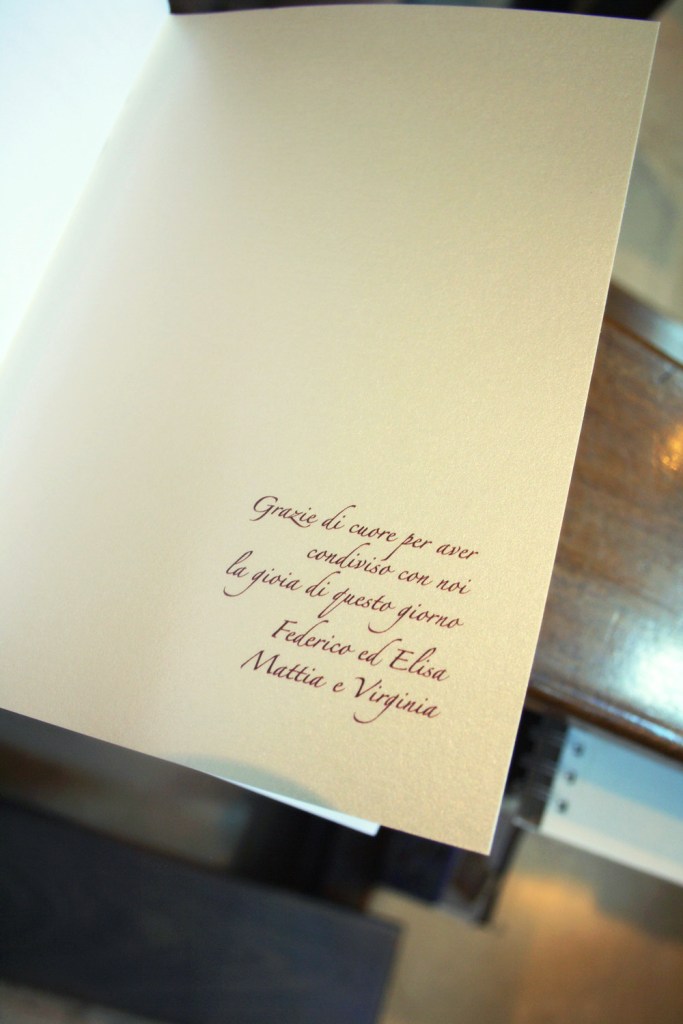 Grazie di cuore per aver
condiviso con noi
la gioia di questo giorno
Federico ed Elisa
Mattia e Virginia